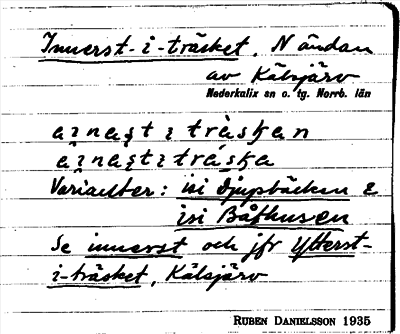 Innerst-i-träsket, N ändan
av Kälsjärv
Nederkalix sn o. tg. Norrb. län
aɪnast ɪ tràskan
aɪnast ɪ tráska
Varianter: isi Djupbäcken &
isi Båthusen
Se innerst och jfr Ytterst-
i-träsket, Kälsjärv
RUBEN DANIELSSON 1935